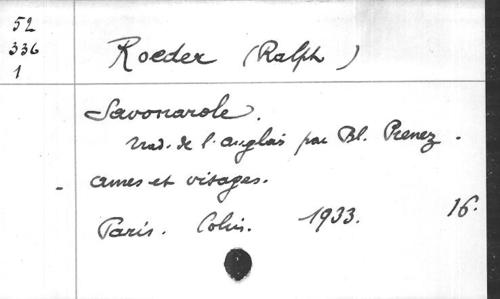 52
336
1
Roeder (Ralph)
Savonarole.
trad. de l'anglais par Bl. Prenez.
- ames et visages.
Paris. Colin. 1933. 16.